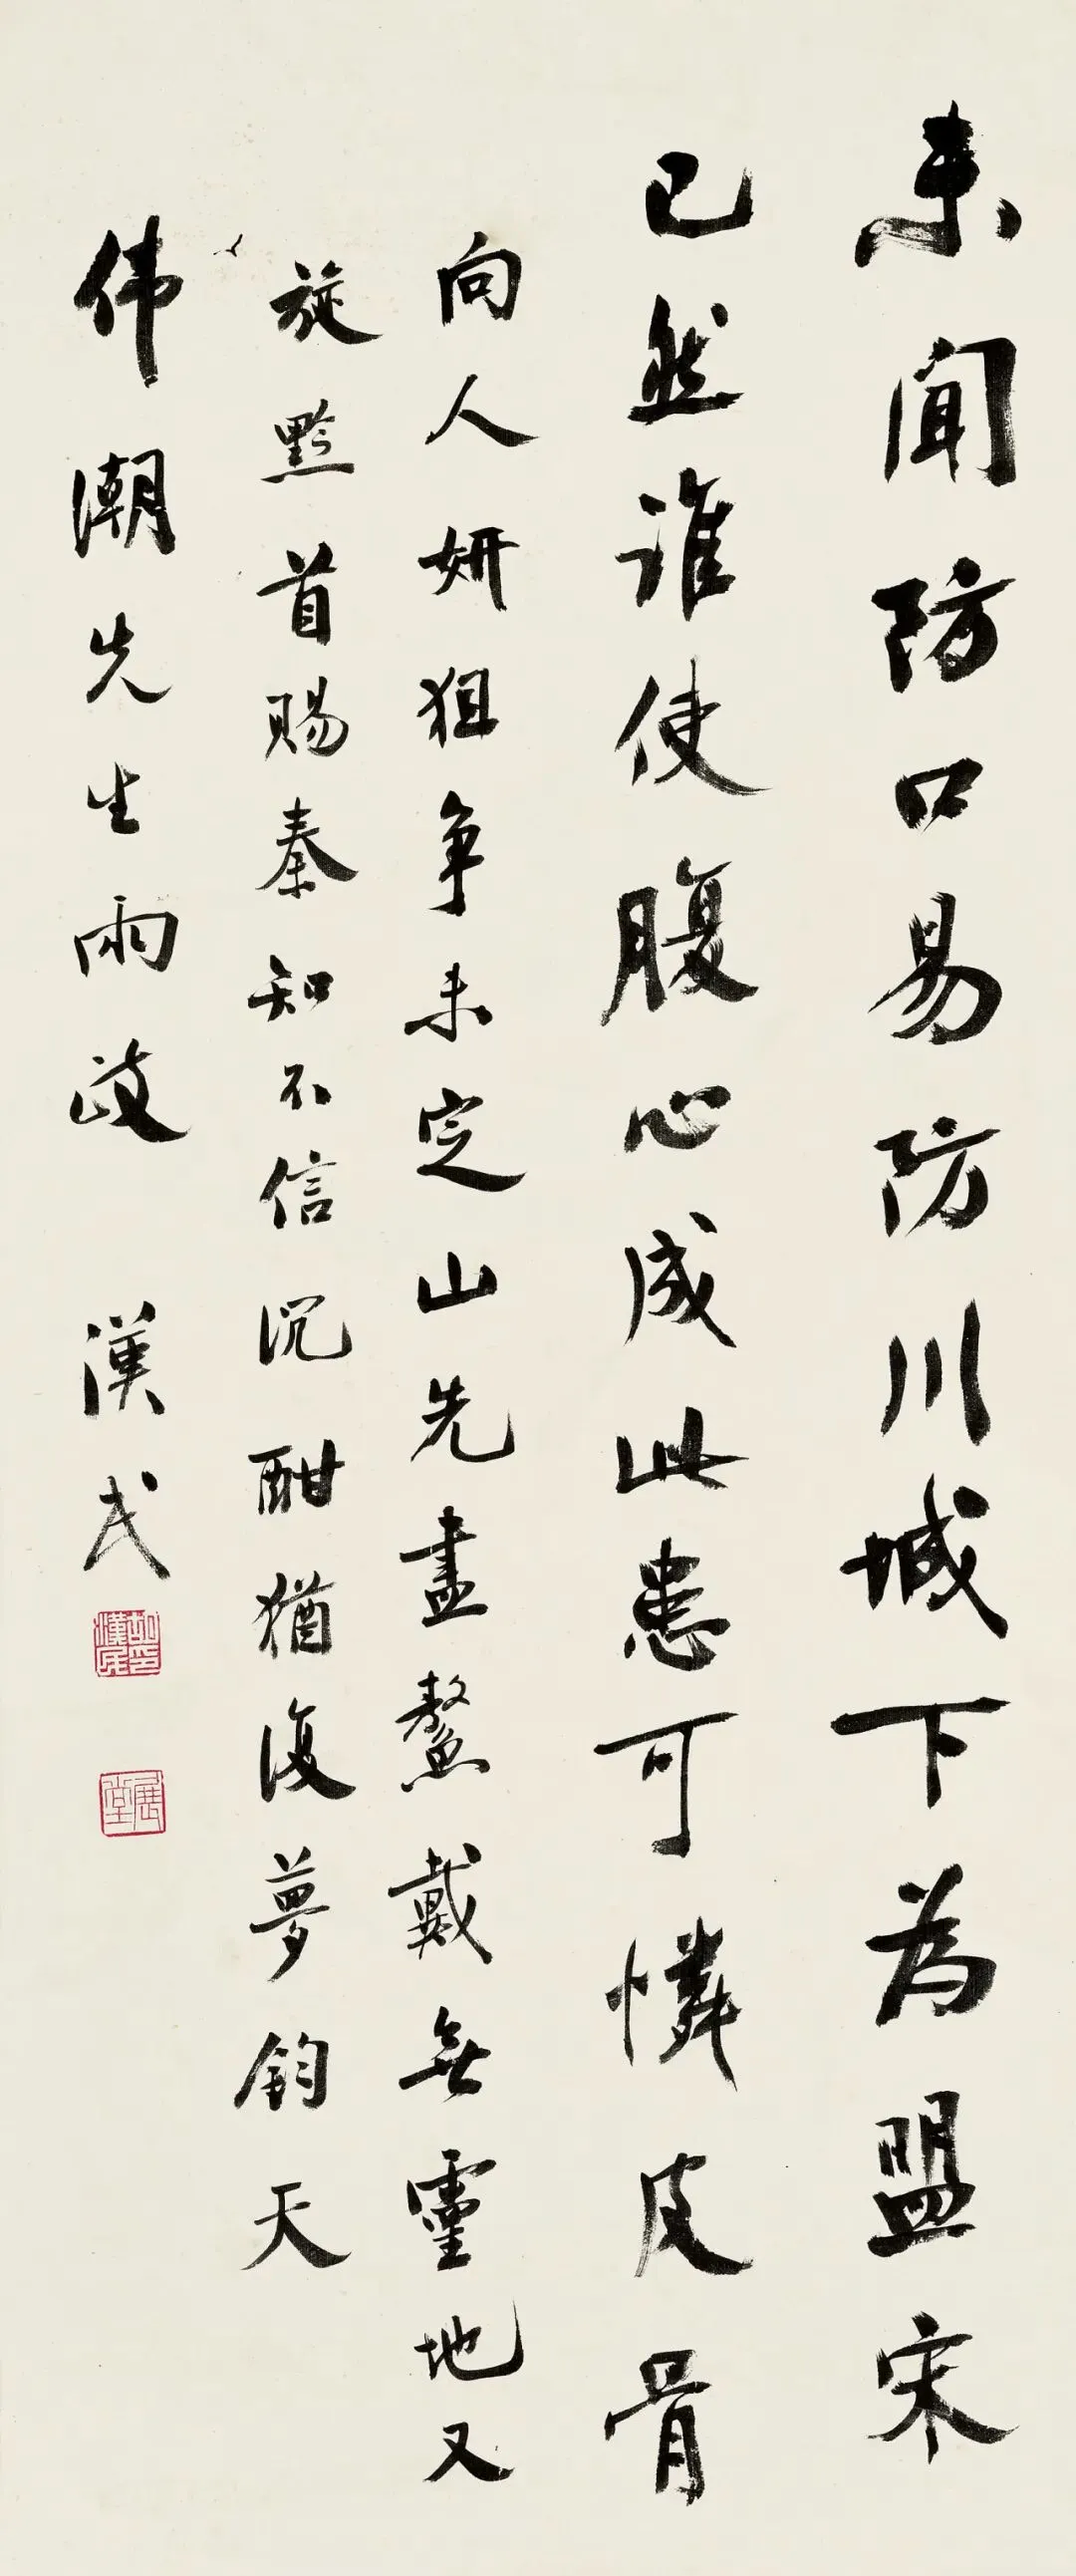 未聞防口易防川城下為盟宋
已然誰使腹心成此患可憐皮骨
向人妍狙爭未定山先盡鰲戴無靈地又
旋黔首賜秦知不信沉酣猶復夢鈞天
伟潮先生雨政 漢民
胡漢民印
展堂